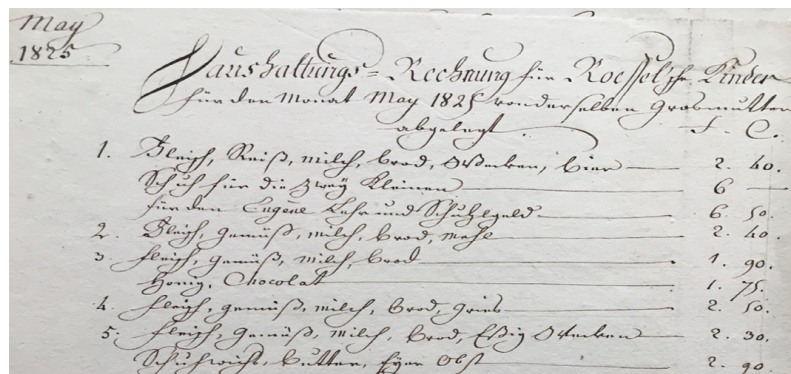 May
1825.
Haushaltungs=Rechnung für Roesselsche Kinder
für den Monat May 1825 von derselben Grosmutter
abgelegt. f. C.
1. Fleisch, Reiß, milch, brod, Wecken, bier 2. 40.
Schuh für die zwey Kleinen 6 —
für den Eugène Lehr und Schuhlgeld 6. 50.
2. Fleisch, gemüß, milch, brod, mehl 2. 40
3. Fleisch, gemüß, milch, brod 1. 90.
Honig, Chocolat 1. 75.
4. Fleisch, gemüß, milch, brod, gries 2. 50.
5. Fleisch, gemüß, milch, brod, Eßig Wecken 2. 30.
Schuhwichs, butter, Eyer Obst 2. 90.